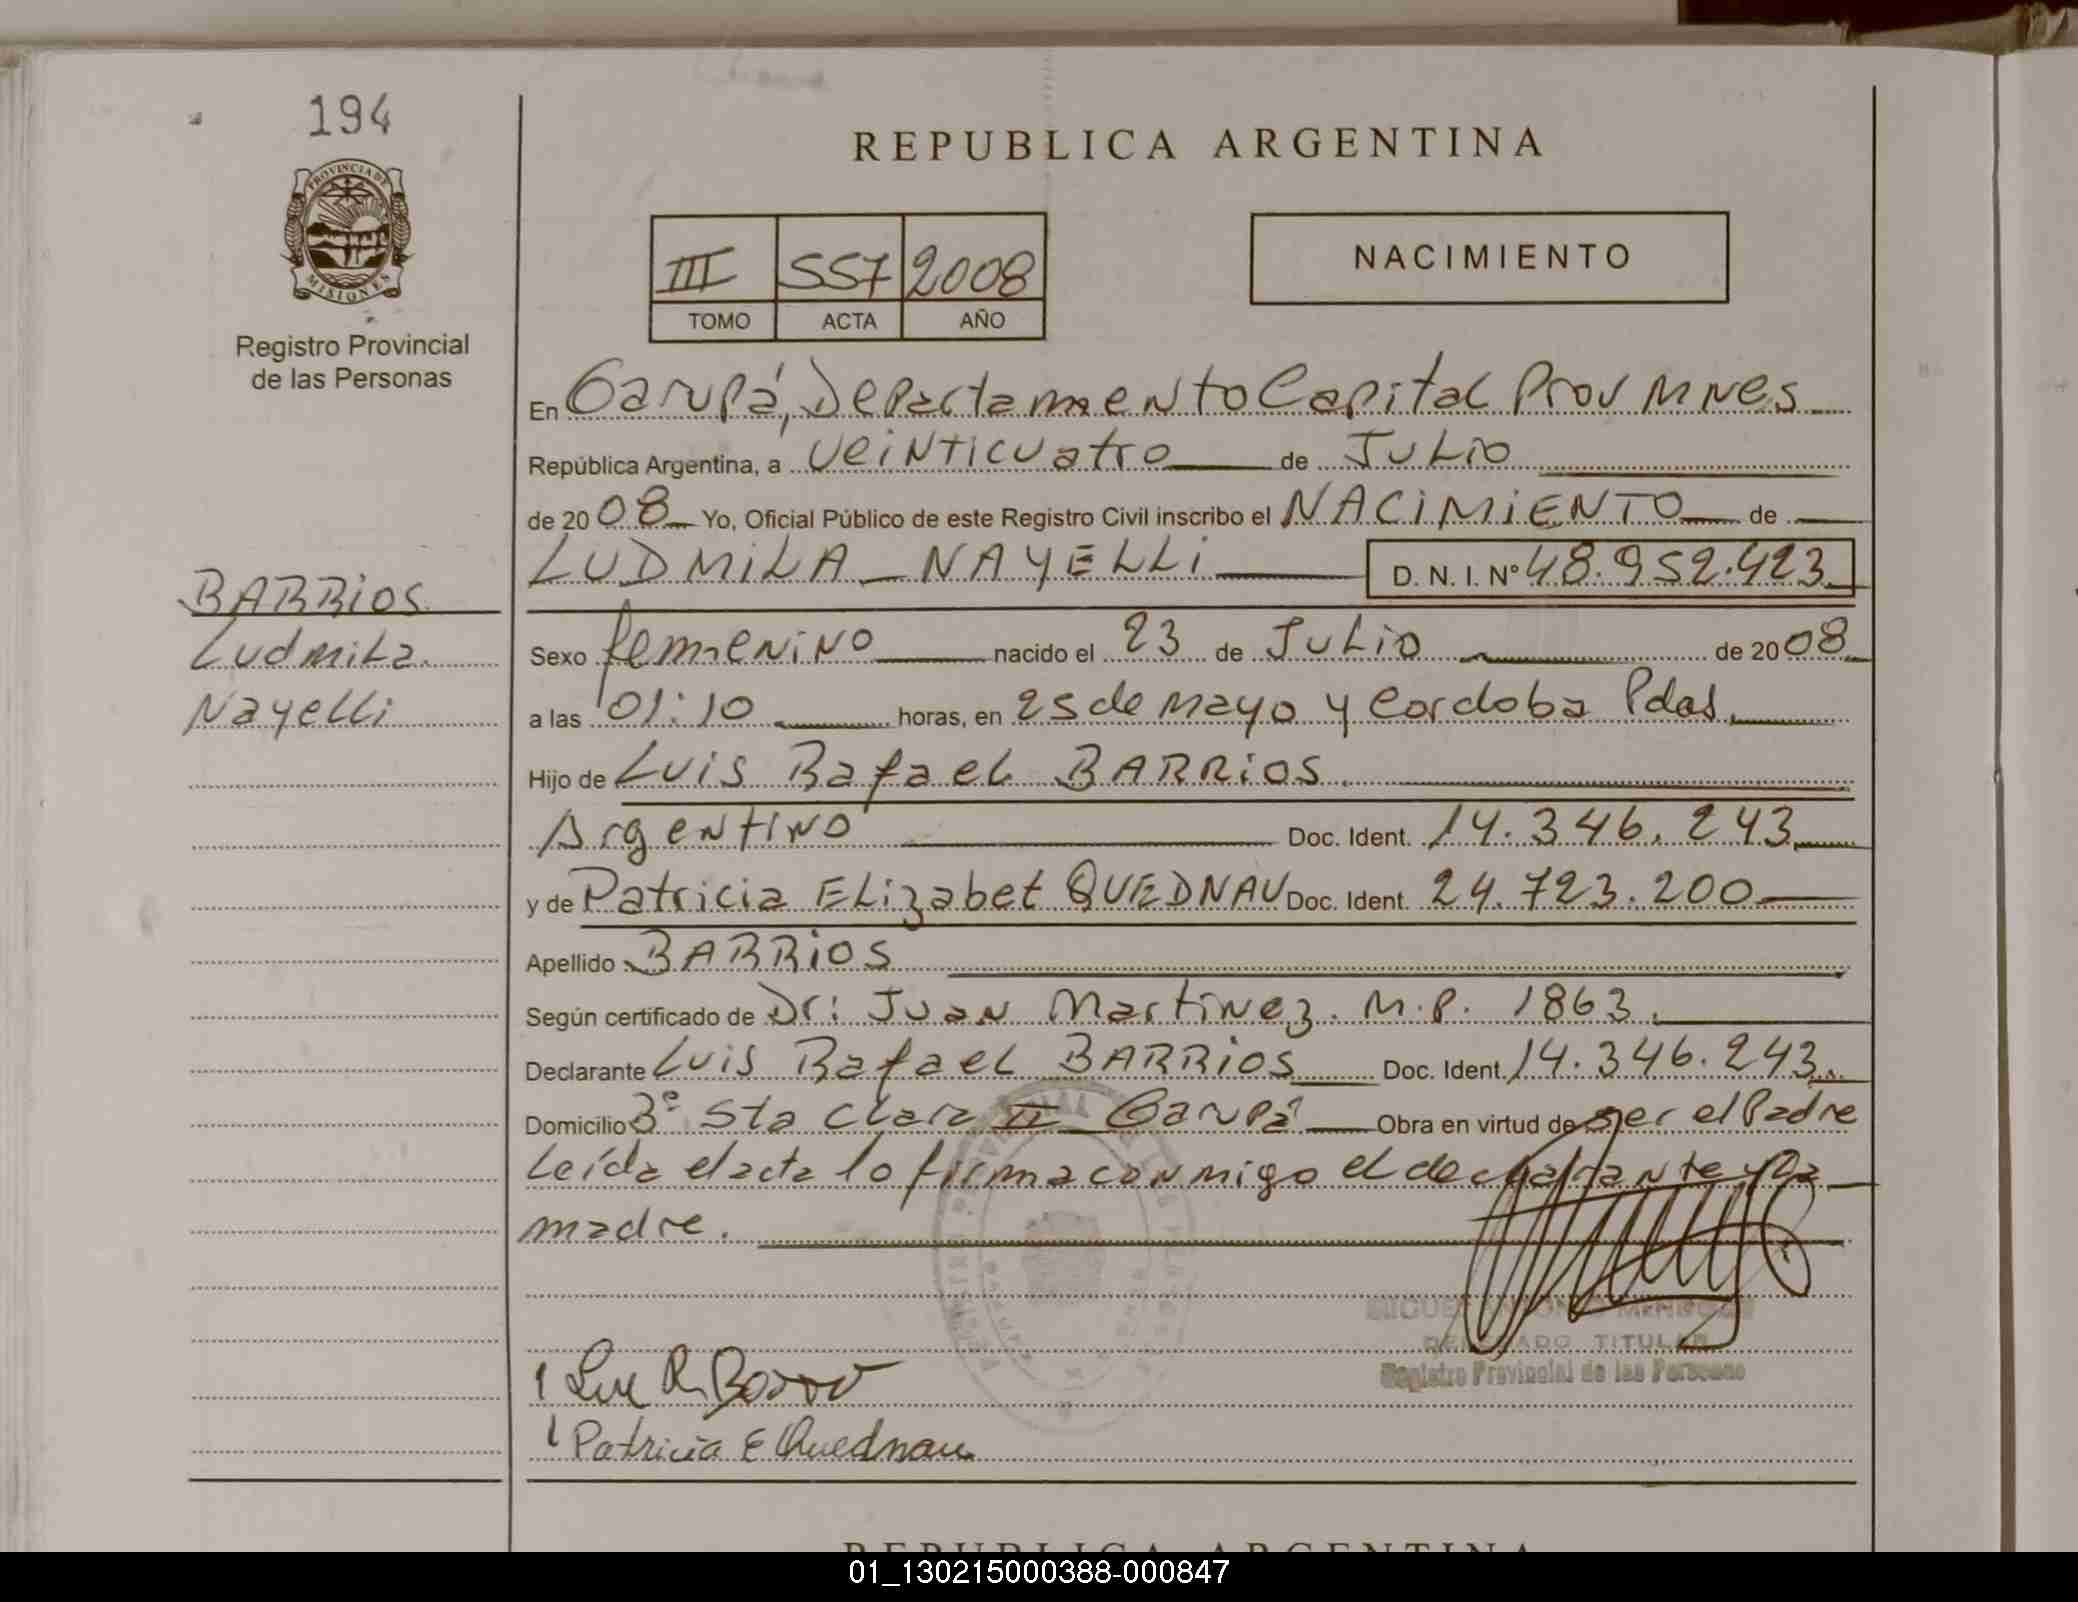 194
REPUBLICA ARGENTINA
PROVINCIA DE
MISIONES
Registro Provincial
de las Personas
III 557 2008
TOMO ACTA AÑO
NACIMIENTO
En Garupá, Departamento Capital Prov Mnes
República Argentina, a veinticuatro de Julio
de 2008 Yo, Oficial Público de este Registro Civil inscribo el NACIMIENTO de
LUDMILA NAYELLI D. N. I. Nº 48.952.423
BARRIOS
Ludmila
Nayelli
Sexo femenino nacido el 23 de Julio de 2008
a las 01:10 horas, en 25 de mayo y Cordoba Pdas
Hijo de Luis Rafael BARRIOS
Argentino Doc. Ident. 14.346.243
y de Patricia Elizabet QUEDNAU Doc. Ident. 24.723.200
Apellido BARRIOS
Según certificado de Dr: Juan Martinez. M.P. 1863
Declarante Luis Rafael BARRIOS Doc. Ident. 14.346.243
Domicilio Bº Sta Clara II Garupá Obra en virtud de ser el Padre
Leída el acta lo firma conmigo el declarante y la
madre.
DELEGADO TITULAR
Registro Provincial de las Personas
Patricia E Quednau
REPUBLICA ARGENTINA
01_130215000388-000847